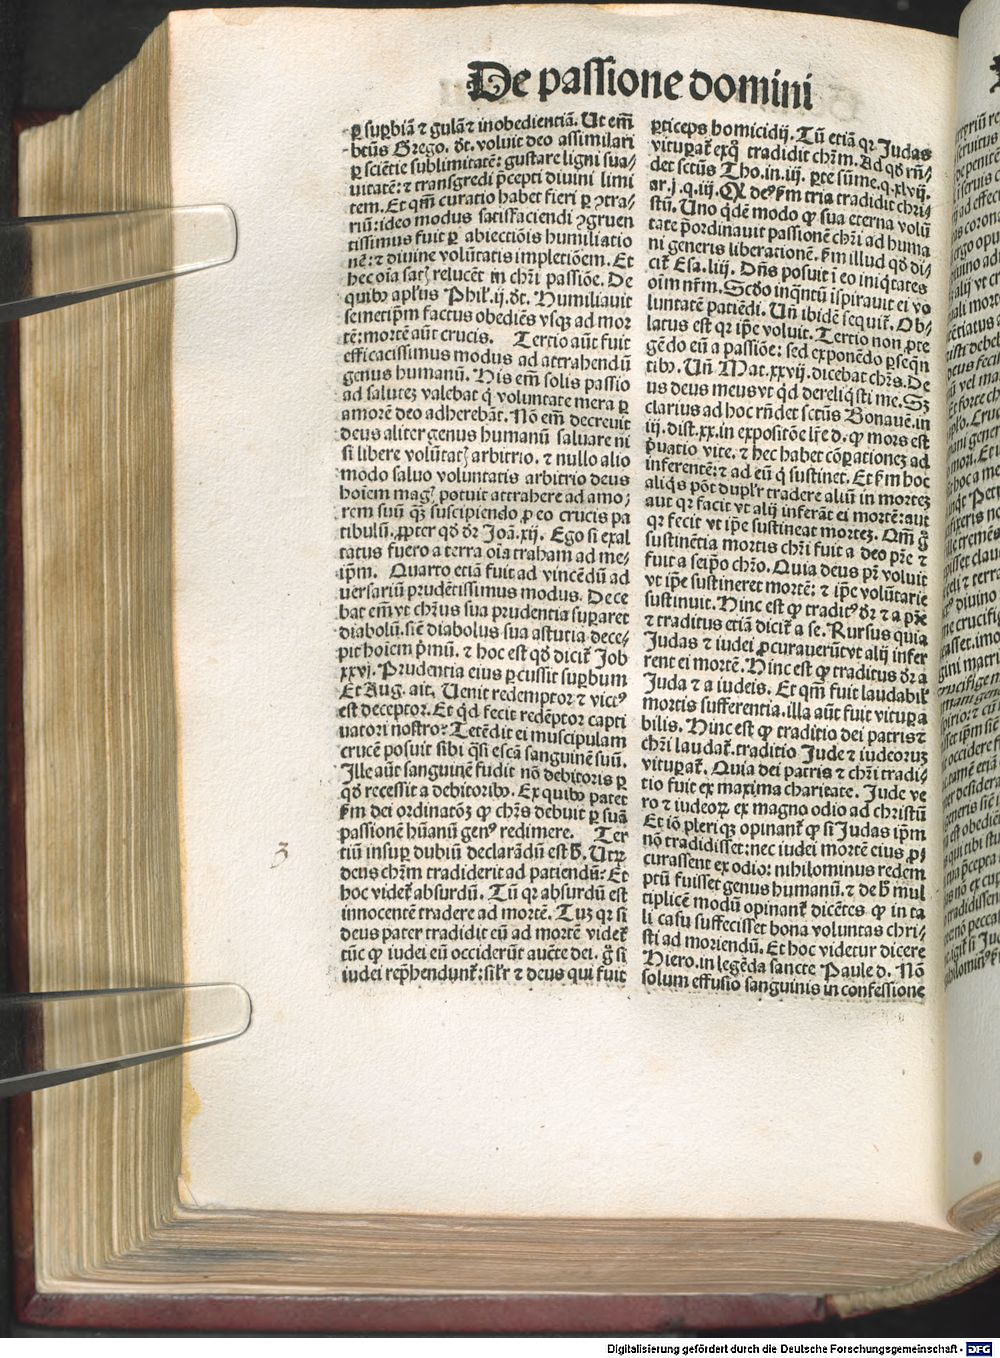 De passione domini
ꝑ suꝑbiā ⁊ gulā ⁊ inobedientiā. Ut em̄
btūs Grego. dt. voluit deo assimilari
ꝑ sciētie sublimitatē: gustare ligni sua/
uitatē: ⁊ transgredi p̄cepti diuini limi
tem. Et qm̄ curatio habet fieri ꝑ ꝯtra/
riū: ideo modus satisfaciendi ꝯgruen
tissimus fuit ꝑ abiectiōis humiliatio
nē: ⁊ diuine volūtatis impletiōem. Et
hec oīa satꝭ relucēt in chr̄i passiōe. De
quibꝰ apl̄us Phil̓. ij. dt. Humiliauit
semetip̄m factus obediēs vsqꝫ ad mor
tē: mortē aūt crucis. Tertio aūt fuit
efficacissimus modus ad attrahendū
genus humanū. His em̄ solis passio
ad salutez valebat q̇ voluntate mera ꝑ
amorē deo adherebāt. Nō em̄ decreuit
deus aliter genus humanū saluare ni
si libere volūtatꝭ arbitrio. ⁊ nullo alio
modo saluo voluntatis arbitrio deus
hoīem magꝭ potuit attrahere ad amo/
rem suū qꝫ suscipiendo ꝓ eo crucis pa
tibulū. ꝓpter qd̓ dr̄ Joā. xij. Ego si exal
tatus fuero a terra oīa traham ad me/
ip̄m. Quarto etiā fuit ad vincēdū ad
uersariū prudētissimus modus. Dece
bat em̄ vt chr̄us sua prudentia suꝑaret
diabolū. sic̄ diabolus sua astutia dece/
pit hoīem p̄mū. ⁊ hoc est qd̓ dicit̄ Job
xxvj. Prudentia eius ꝑcussit suꝑbum
Et Aug. ait. Uenit redemptor ⁊ victꝰ
est deceptor. Et qd̓ fecit redēptor capti
uatori nostro? Tetēdit ei muscipulam
crucē posuit sibi q̄si escā sanguinē suū.
Ille aūt sanguinē fudit nō debitoris ꝑ
qd̓ recessit a debitoribꝰ. Ex quibꝰ patet
ẜm dei ordinatōꝫ ꝙ chr̄s debuit ꝑ suā
passionē hūanū genꝰ redimere. Ter
tiū insuꝑ dubiū declarādū est h̄. Utrꝫ
deus chr̄m tradiderit ad patiendū? Et
hoc videt̄ absurdū. Tū qꝛ absurdū est
innocentē tradere ad mortē. Tuꝫ qꝛ si
deus pater tradidit eū ad mortē videt̄
tūc ꝙ iudei eū occiderūt aucte dei. g̊ si
iudei rep̄hendunt̄: sil̓r ⁊ deus qui fuit
ꝑticeps homicidij. Tū etiā qꝛ Judas
vituꝑat̄ ex q̊ tradidit chr̄m. Ad qd̓ rn̄/
det sctūs Tho. in. iij. ꝑte sūme. q. xlvij.
ar. j. q. iij. Ꝙ deꝰ ẜm tria tradidit chri/
stū. Uno qd̓ē modo ꝙ sua eterna volū
tate p̄ordinauit passionē chr̄i ad huma
ni generis liberationē. ẜm illud qd̓ di/
cit̄ Esa. liij. Dn̄s posuit ī eo iniq̇tates
oīm nr̄m. Scd̓o inq̇ntū īspirauit ei vo
luntatē patiēdi. Un̄ ibidē sequit̄. Ob/
latus est qꝛ ip̄e voluit. Tertio non ꝓte
gēdo eū a passiōe: sed exponēdo ꝑseqn̄
tibꝰ. Un̄ Mat. xxvij. dicebat chr̄s. De
us deus meus vt qd̓ dereliq̇sti me. Sꝫ
clarius ad hoc rn̄det sctūs Bonauē. in
iij. dist. xx. in expositōe lr̄e d. ꝙ mors est
p̄uatio vite. ⁊ hec habet cōꝑationeꝫ ad
inferentē: ⁊ ad eū q̇ sustinet. Et ẜm hoc
aliq̇s pōt dupl̓r tradere aliū in morteꝫ
aut qꝛ facit vt alij inferāt ei mortē: aut
qꝛ fecit vt ip̄e sustineat morteꝫ. Qm̄ g̊
sustinētia mortis chr̄i fuit a deo pr̄e ⁊
fuit a seip̄o chr̄o. Quia deus pr̄ voluit
vt ip̄e sustineret mortē: ⁊ ip̄e volūtarie
sustinuit. Hinc est ꝙ traditꝰ dr̄ ⁊ a pr̄e
⁊ traditus etiā dicit̄ a se. Rursus quia
Judas ⁊ iudei ꝓcurauerūt vt alij infer
rent ei mortē. Hinc est ꝙ traditus dr̄ a
Juda ⁊ a iudeis. Et qm̄ fuit laudabil̓
mortis sufferentia. illa aūt fuit vituꝑa
bilis. Hinc est ꝙ traditio dei patris ⁊
chr̄i laudat̄. traditio Jude ⁊ iudeoruꝫ
vituꝑat̄. Quia dei patris ⁊ chr̄i tradi/
tio fuit ex maxima charitate. Jude ve
ro ⁊ iudeoꝝ ex magno odio ad christū
Et iō pleriqꝫ opinant̄ ꝙ si Judas ip̄m
nō tradidisset: nec iudei mortē eius ꝓ/
curassent ex odio: nihilominus redem
ptū fuisset genus humanū. ⁊ de h̄ mul
tiplicē modū opinant̄ dicētes ꝙ in ta
li casu suffecisset bona voluntas chri/
sti ad moriendū. Et hoc videtur dicere
Hiero. in legēda sancte Paule d. Nō
solum effusio sanguinis in confessione
3
Digitalisierung gefördert durch die Deutsche Forschungsgemeinschaft - DFG